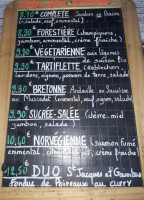 8,30€ COMPLETE Jambon de Bayonne
salade, oeuf, emmental)
8,30 FORESTIERE (champignons,
jambon, emmental, crème fraîche)
VEGETARIENNE aux légumes
de saison Bio
9,30€ TARTIFLETTE (Reblochon,
lardons, oignons, pomme de terre, salade
BRETONNE Andouille ou Saucisse
au Muscadet (emmental, oeuf, oignon, salade)
9,90 SUCRÉE-SALÉE (chèvre, miel
jambon, salade)
10,40€ NORVEGIENNE (saumon fumé
emmental, crème fraîche)
12,50 DUO St Jacques et Gambas
Fondue de Poireaux au CURRY